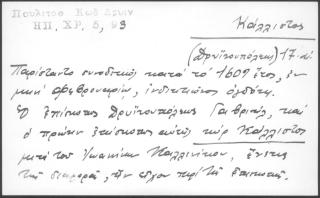 Πουλίτσα Κωδ Δρυιν
ΗΠ. ΧΡ. 5, 93
Κάλλιστος
(Δρυϊνουπόλεως) 17 αἰ.
Παρίσταντο συνοδικῶς κατὰ τὸ 1609 ἔτος, ἐν
μηνὶ φεβρουαρίῳ, ἰνδικτιῶνος ὀγδόης.
Ὁ ἐπίσκοπος Δρυϊνουπόλεως Γαβριὴλ, καὶ
ὁ πρώην ἐπίσκοπος αὐτῆς κὺρ Κάλλιστος
μετὰ τοῦ Ἰωαννίνων Καλλινίκου, ἕνεκεν
τῆς διαφορᾶς, ἣν εἶχον περὶ τῆς